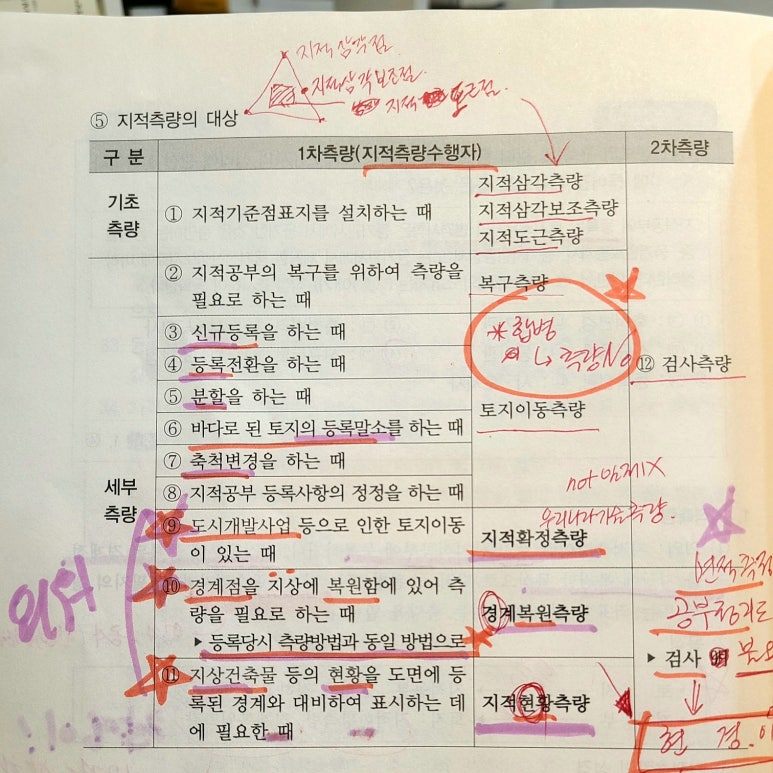 지적삼각점.
지적삼각보조점.
지적 도근점.
⑤ 지적측량의 대상
구 분
1차측량(지적측량수행자)
2차측량
기초
측량
① 지적기준점표지를 설치하는 때
지적삼각측량
지적삼각보조측량
지적도근측량
세부
측량
② 지적공부의 복구를 위하여 측량을
필요로 하는 때
복구측량
③ 신규등록을 하는 때
④ 등록전환을 하는 때
⑤ 분할을 하는 때
⑥ 바다로 된 토지의 등록말소를 하는 때
⑦ 축척변경을 하는 때
⑧ 지적공부 등록사항의 정정을 하는 때
※합병
↳ 측량No
토지이동측량
⑫ 검사측량
⑨ 도시개발사업 등으로 인한 토지이동
이 있는 때
지적확정측량
⑩ 경계점을 지상에 복원함에 있어 측
량을 필요로 하는 때
▶ 등록당시 측량방법과 동일 방법으로
경계복원측량
면적측정
공부정리도
▶ 검사
⑪ 지상건축물 등의 현황을 도면에 등
록된 경계와 대비하여 표시하는 데
에 필요한 때
지적현황측량
⇓
현 경.